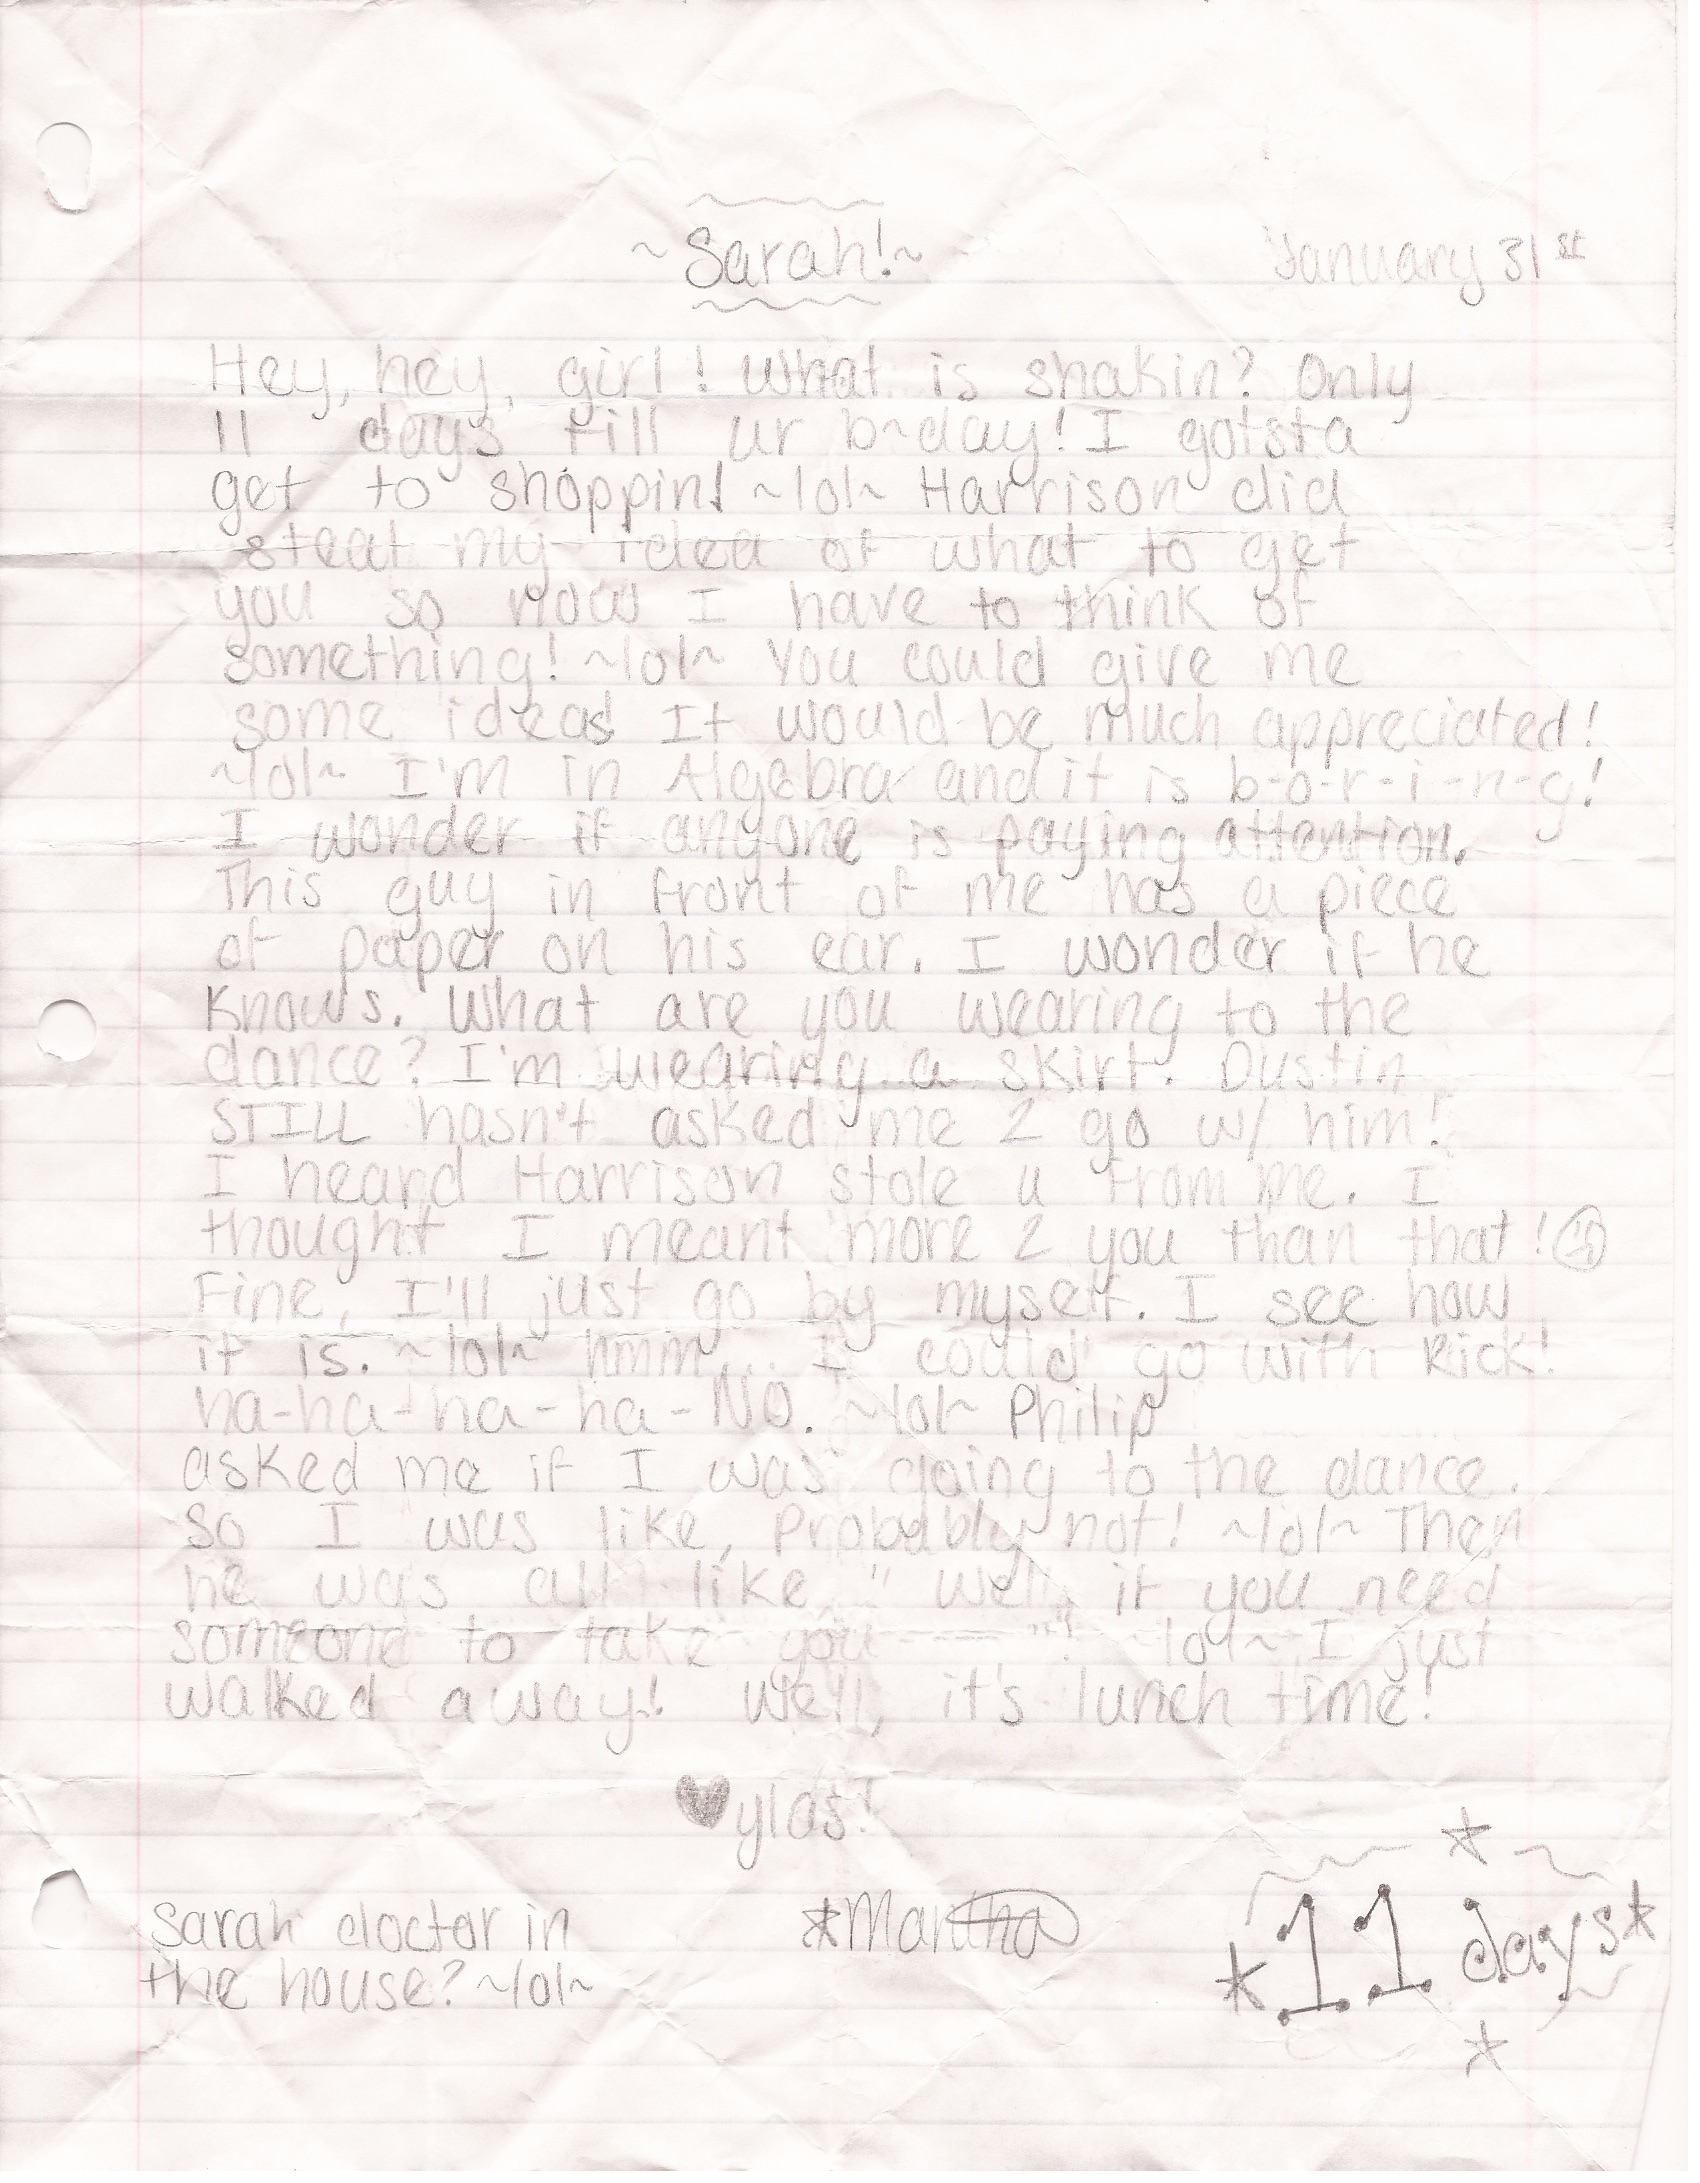 ~Sarah!~
January 31st
Hey, hey, girl! What is shakin? Only
11 days till ur b~day! I gotsta
get to shoppin! ~lol~ Harrison did
steal my idea of what to get
you so now I have to think of
something! ~lol~ You could give me
some ideas! It would be much appreciated!
~lol~ I'm in Algebra and it is b-o-r-i-n-g!
I wonder if anyone is paying attention.
This guy in front of me has a piece
of paper on his ear. I wonder if he
knows. What are you wearing to the
dance? I'm wearing a skirt. Dustin
STILL hasn't asked me 2 go w/ him!
I heard Harrison stole u from me. I
thought I meant more 2 you than that!
Fine, I'll just go by myself. I see how
it is. ~lol~ hmm... I could go with Rick!
ha-ha-ha-ha-NO. ~lol~ Philip
asked me if I was going to the dance.
So I was like, Probably not! ~lol~ Then
he was all like " well, if you need
someone to take you ----"! ~lol~ I just
walked away! Well, it's lunch time!
♥ylas!
*Martha
Sarah doctor in
the house? ~lol~
*11 days*